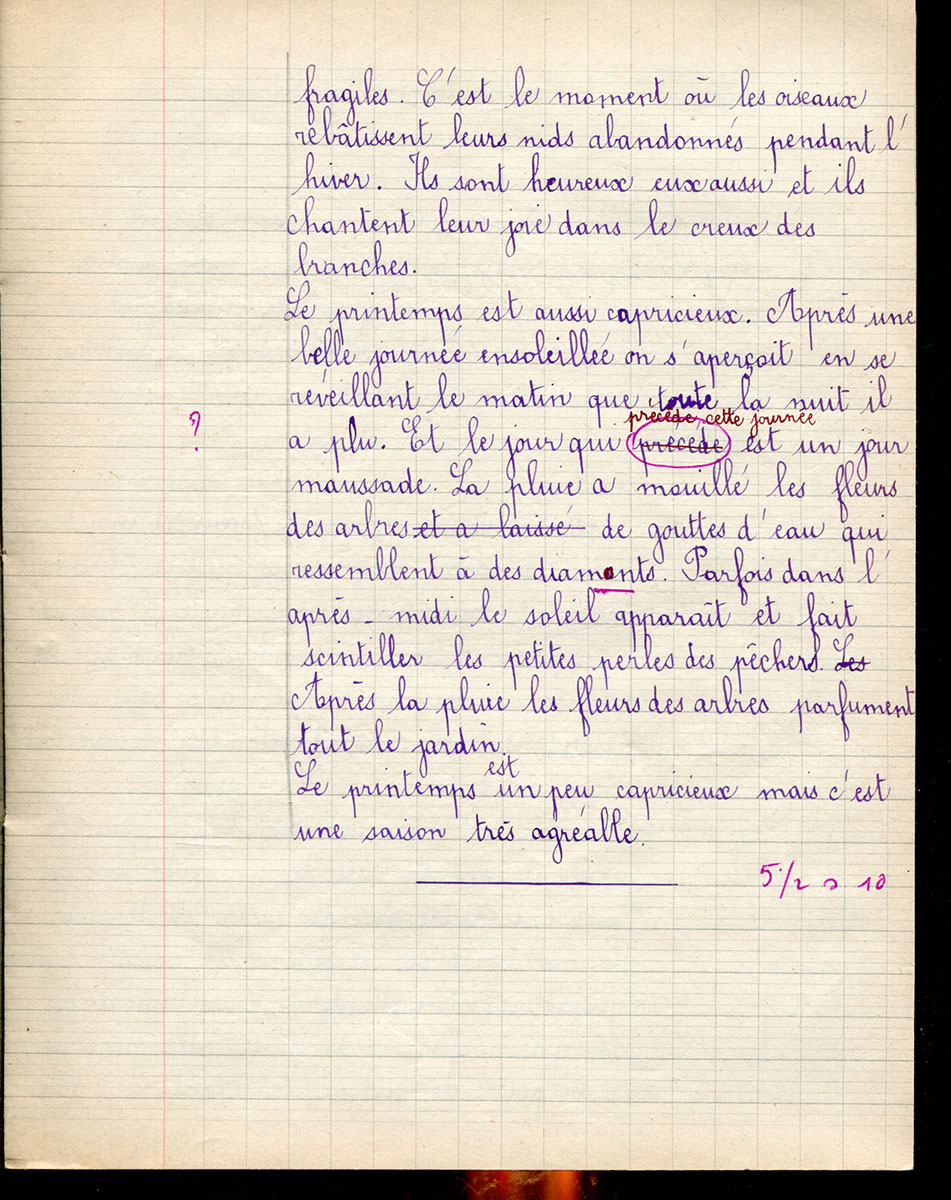 fragiles. C'est le moment où les oiseaux
rebâtissent leurs nids abandonnés pendant l'
hiver. Ils sont heureux eux aussi et ils
chantent leur joie dans le creux des
branches.
Le printemps est aussi capricieux. Après une
belle journée ensoleillée on s'aperçoit en se
réveillant le matin que toute la nuit il
précède, cette journée
? a plu. Et le jour qui précède est un jour
maussade. La pluie a mouillé les fleurs
des arbres et a laissé de gouttes d'eau qui
ressemblent à des diamants. Parfois dans l'
après-midi le soleil apparaît et fait
scintiller les petites perles des pêchers. Les
Après la pluie les fleurs des arbres parfument
tout le jardin.
est
Le printemps un peu capricieux mais c'est
une saison très agréable.
5/2 10